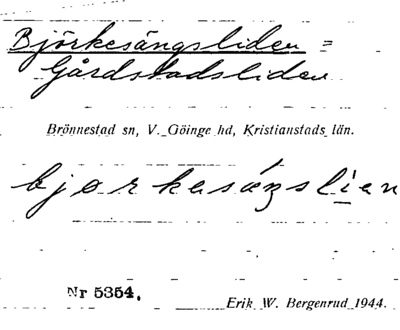 Björkesängsliden =
Gårdstadsliden
Brönnestad sn, V. Göinge hd, Kristianstads län.
bjørkasáŋsli̲en
Nr 5354.
Erik W. Bergenrud 1944.